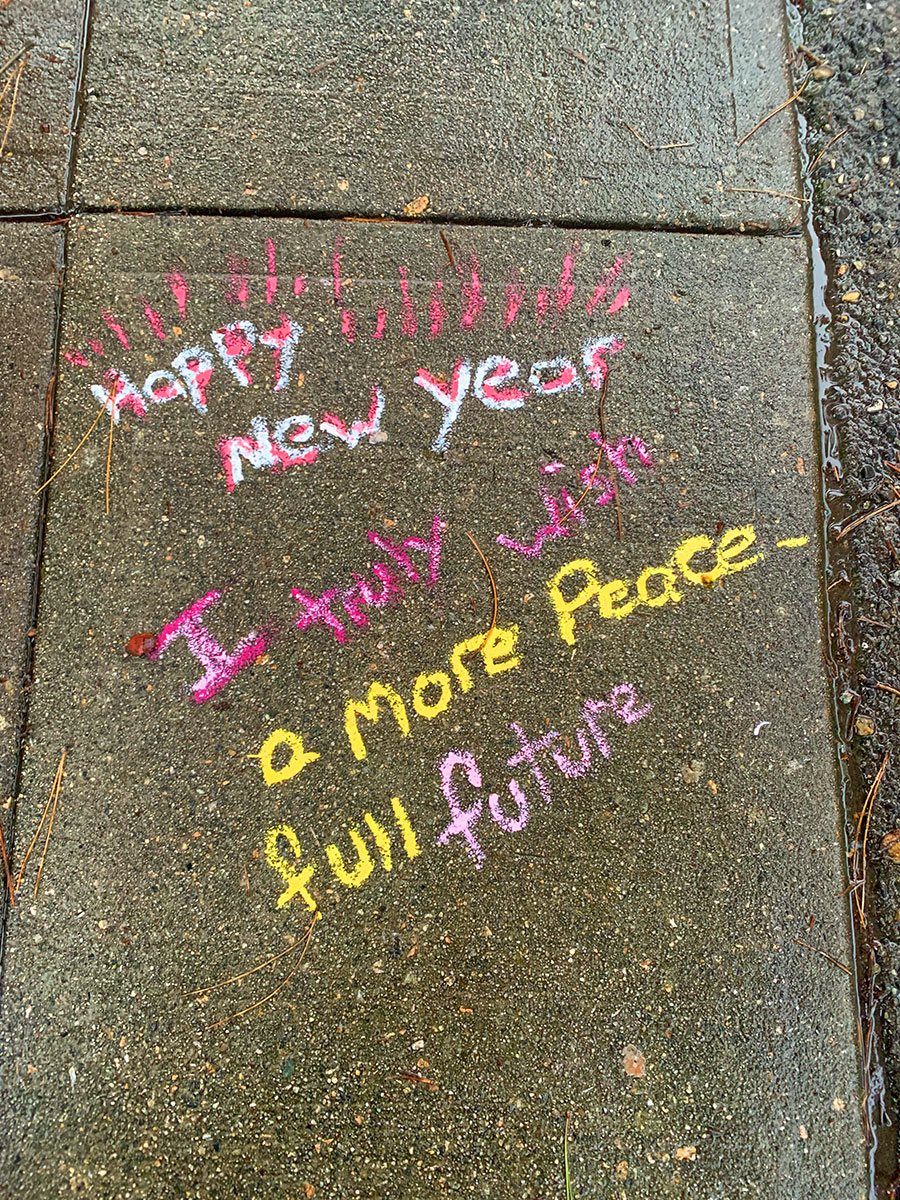 Happy
New Year
I truly wish
a more Peace-
full future